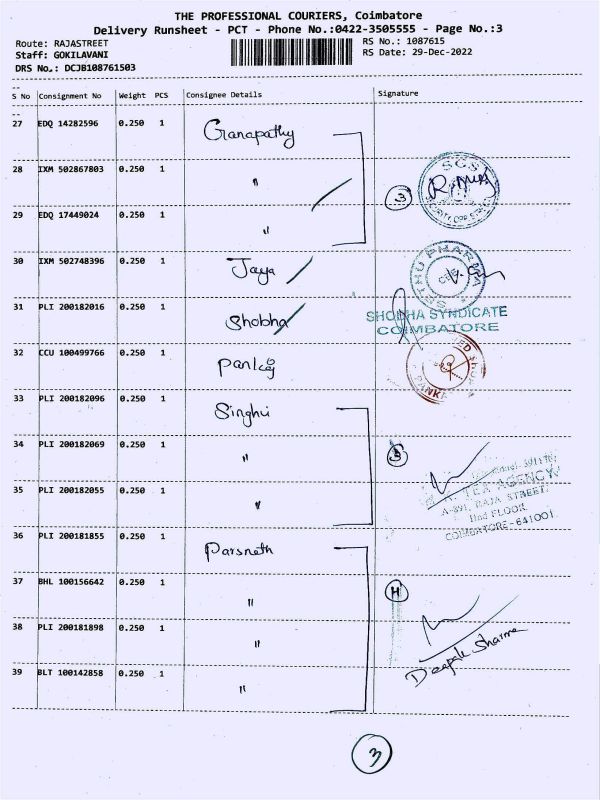 THE PROFESSIONAL COURIERS, Coimbatore
Delivery Runsheet - PCT - Phone No.:0422-3505555 - Page No.:3
Route: RAJASTREET
RS No.: 1087615
Staff: GOKILAVANI
RS Date: 29-Dec-2022
DRS No.: DCJB108761503
S No Consignment No Weight PCS Consignee Details Signature
27 EDQ 14282596 0.250 1 Ganapathy
28 IXM 502867803 0.250 1 "
3
SGS
29 EDQ 17449024 0.250 1 "
30 IXM 502748396 0.250 1 Jaya
SETHU PHARMA
31 PLI 200182016 0.250 1 Shobha
SHOBHA SYNDICATE
COIMBATORE
32 CCU 100499766 0.250 1 Pankaj
33 PLI 200182096 0.250 1 Singhvi
34 PLI 200182069 0.250 1 "
3
35 PLI 200182055 0.250 1 "
TEA AGENCY
RAJA STREET
IInd FLOOR
COIMBATORE-641001
36 PLI 200181855 0.250 1 Parsnath
37 BHL 100156642 0.250 1 "
H
38 PLI 200181898 0.250 1 "
Deepak Sharma
39 BLT 100142858 0.250 1 "
3